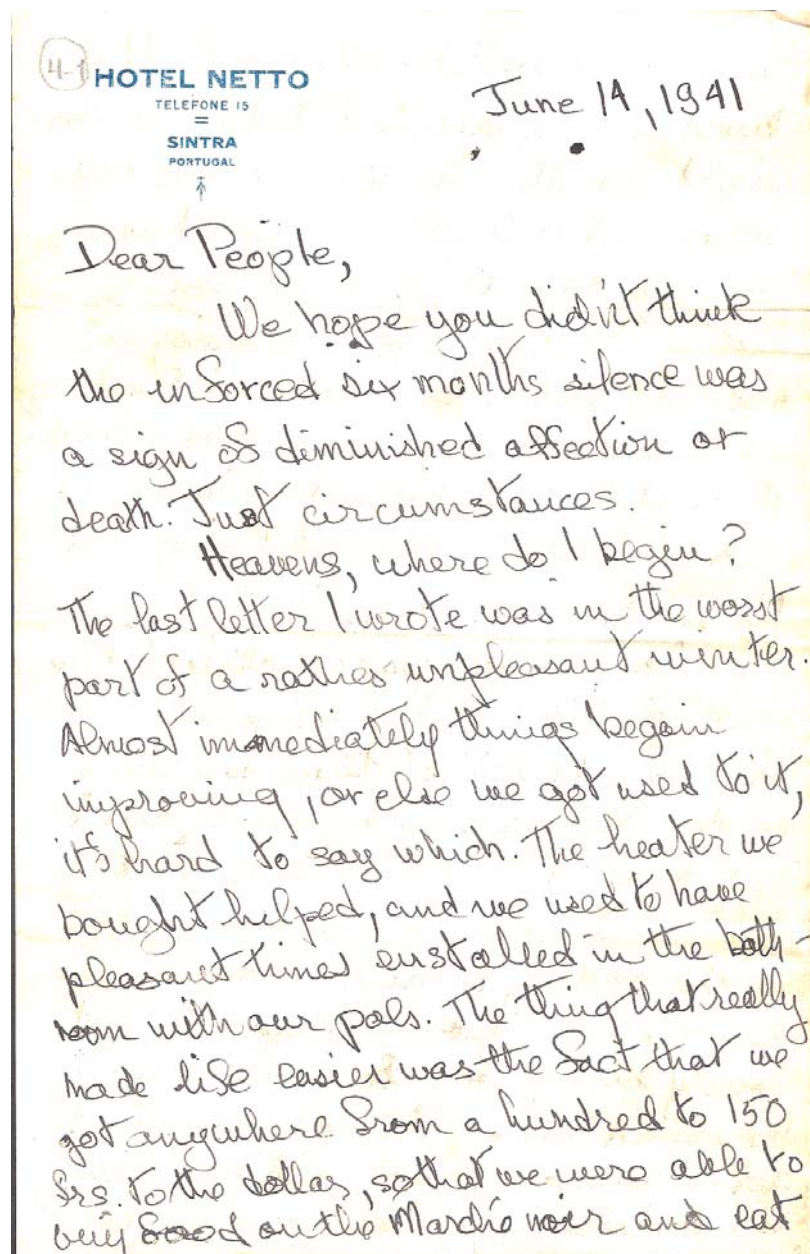 4-1
HOTEL NETTO
TELEFONE 15
=
SINTRA
PORTUGAL
June 14, 1941
Dear People,
We hope you didn't think
the inforced six months silence was
a sign of diminished affection or
death. Just circumstances.
Heavens, where do I begin?
The last letter I wrote was in the worst
part of a rather unpleasant winter.
Almost immediately things began
improving, or else we got used to it,
it's hard to say which. The heater we
bought helped, and we used to have
pleasant times enstalled in the bath-
room with our pals. The thing that really
made life easier was the fact that we
got anywhere from a hundred to 150
frs. to the dollar, so that we were able to
buy food on the Marché noir and eat